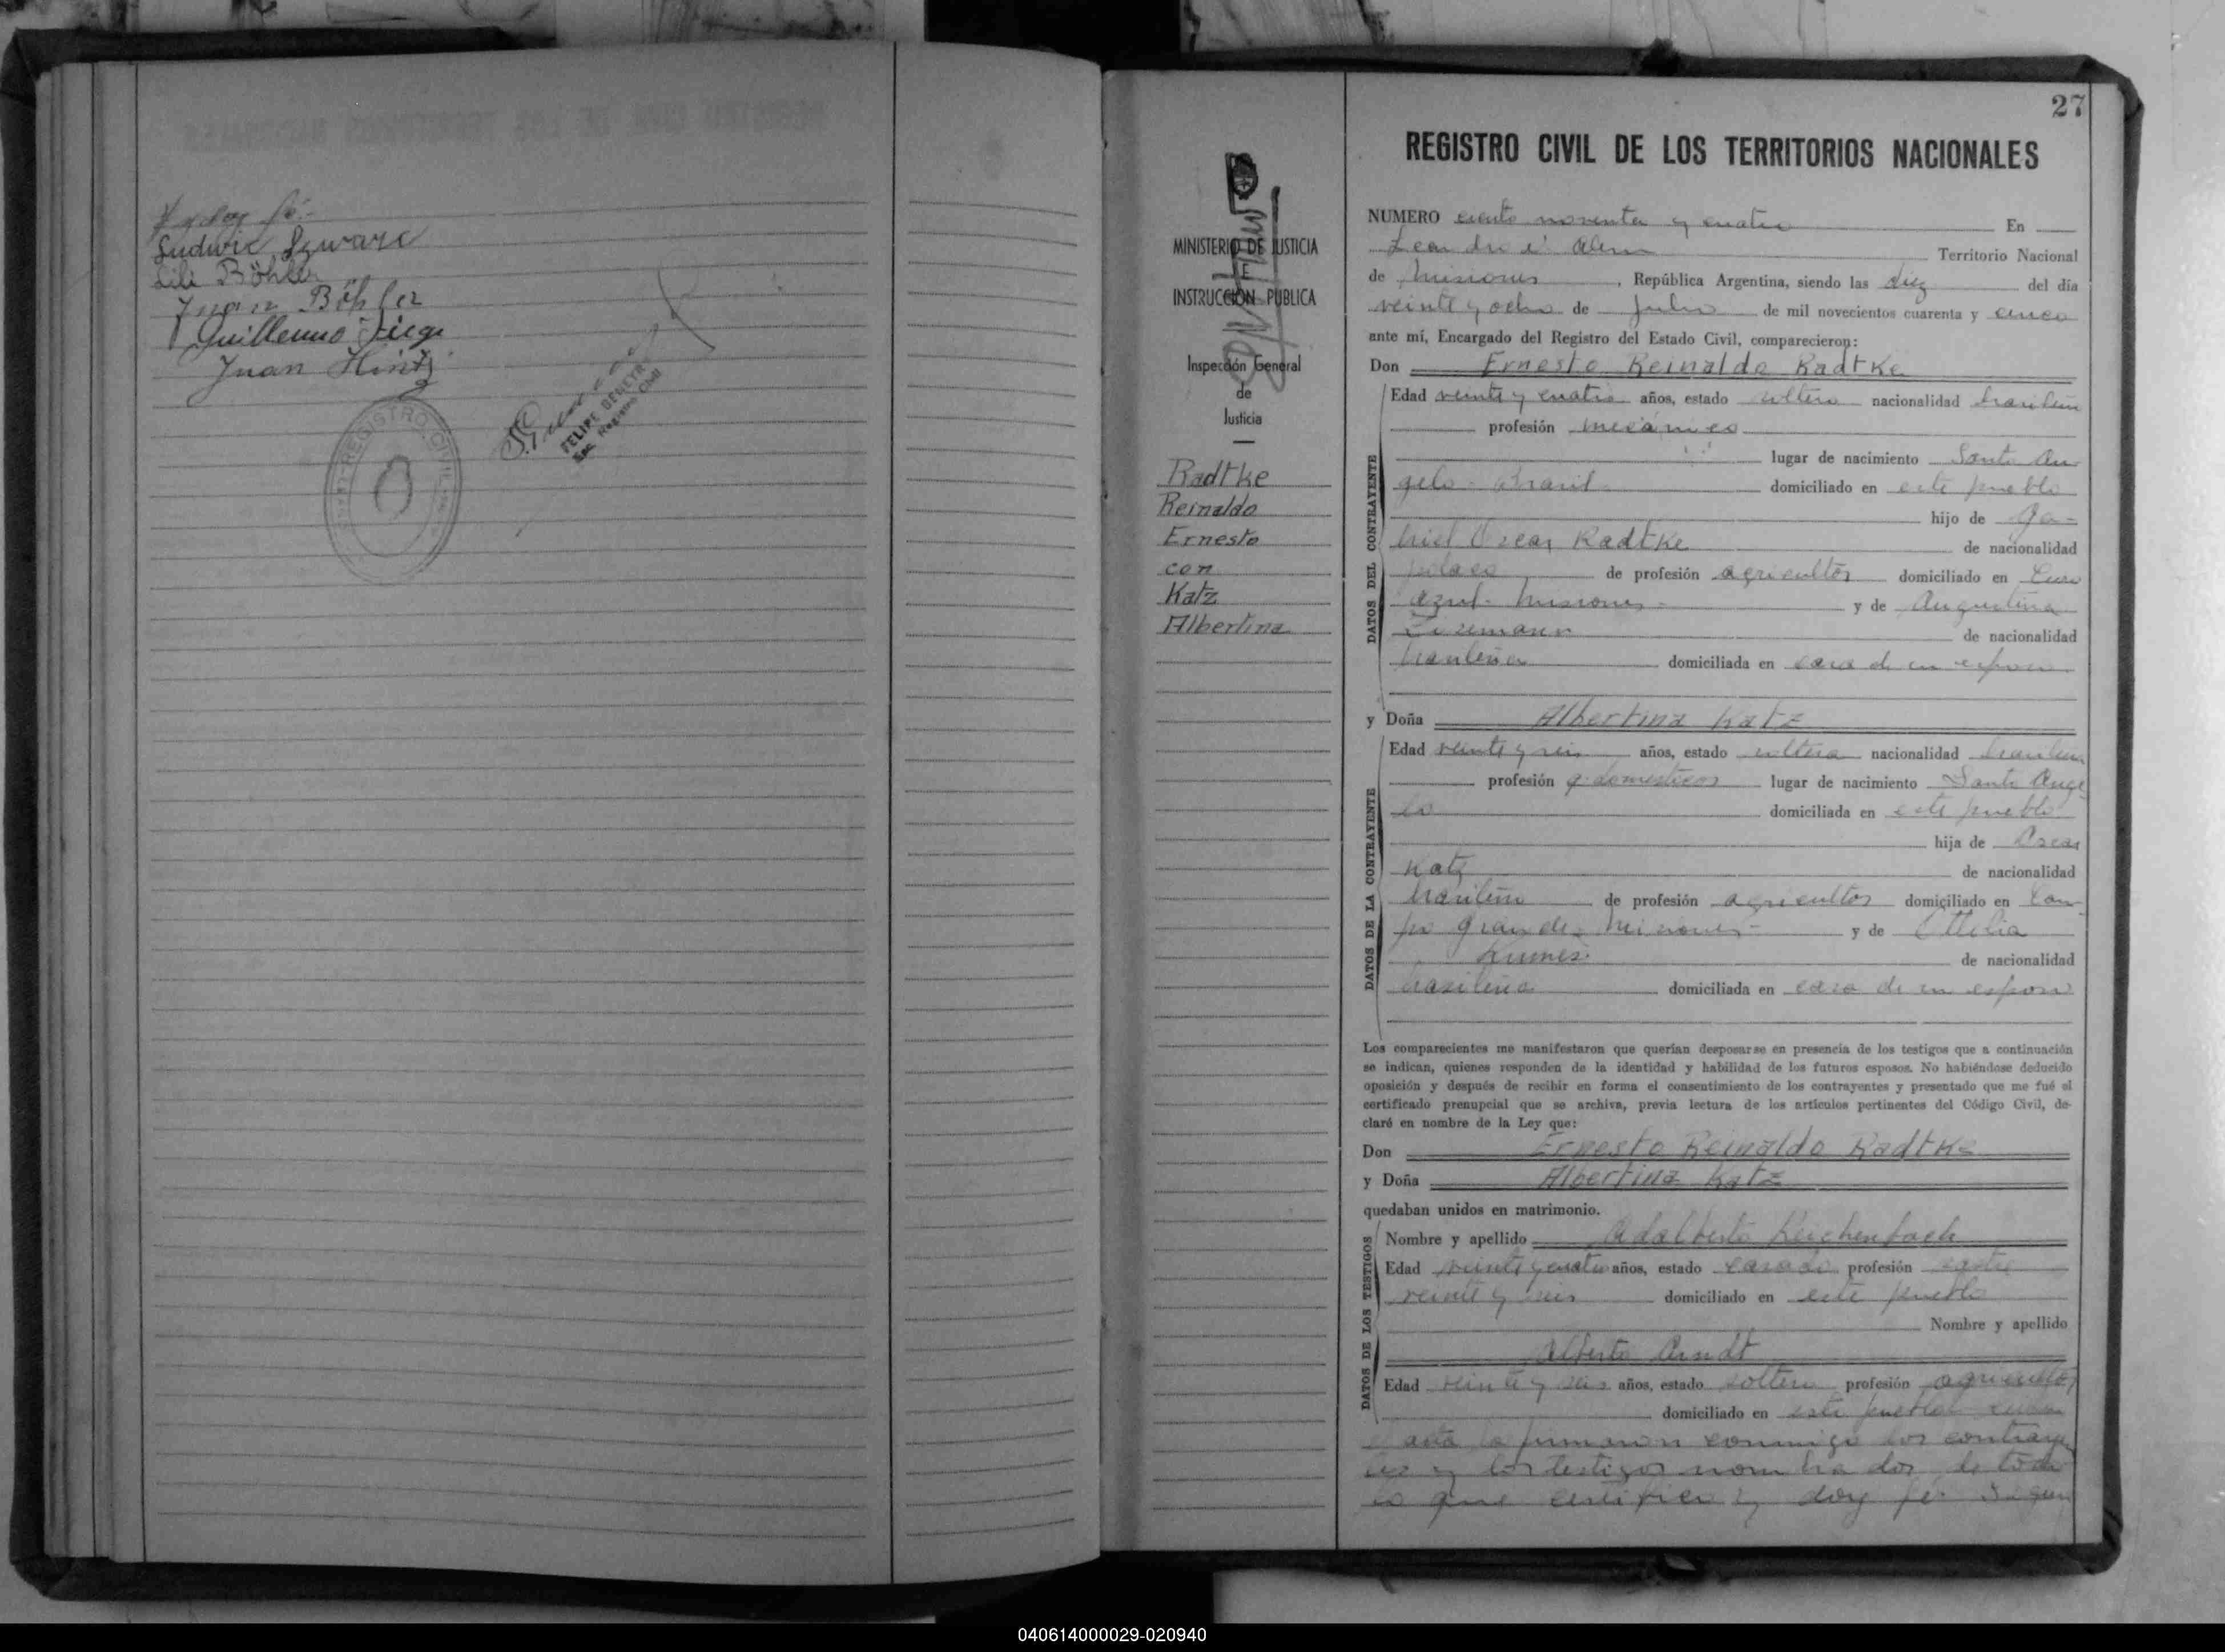 y doy fé.-
Ludwic Szwarc
Lili Böhler
Juan Böhler
Guillermo Fiege
Juan Hintz
REGISTRO CIVIL
FELIPE
Registro Civil
27
REGISTRO CIVIL DE LOS TERRITORIOS NACIONALES
MINISTERIO DE JUSTICIA
E
INSTRUCCIÓN PUBLICA
Inspección General
de
Justicia
Radtke
Reinaldo
Ernesto
con
Katz
Albertina
NUMERO ciento noventa y cuatro En
Leandro N. Alem Territorio Nacional
de Misiones, República Argentina, siendo las diez del día
veinte y ocho de Julio de mil novecientos cuarenta y cinco
ante mí, Encargado del Registro del Estado Civil, comparecieron:
Don Ernesto Reinaldo Radtke
DATOS DEL CONTRAYENTE
Edad veinte y cuatro años, estado soltero nacionalidad brasileña
profesión mecánico
lugar de nacimiento Santo An
gelo - Brasil domiciliado en este pueblo
hijo de Ga-
briel Oscar Radtke de nacionalidad
polaco de profesión agricultor domiciliado en Cerro
azul - Misiones - y de Augustina
de nacionalidad
brasileña domiciliada en casa de su esposo
y Doña Albertina Katz
DATOS DE LA CONTRAYENTE
Edad veinte y seis años, estado soltera nacionalidad brasileña
profesión q. domesticos lugar de nacimiento Santo Ange
lo domiciliada en este pueblo
hija de Oscar
Katz de nacionalidad
brasileño de profesión agricultor domiciliado en Cam-
po grande - Misiones - y de Ottilia
de nacionalidad
brasileña domiciliada en casa de su esposo
Los comparecientes me manifestaron que querían desposarse en presencia de los testigos que a continuación
se indican, quienes responden de la identidad y habilidad de los futuros esposos. No habiéndose deducido
oposición y después de recibir en forma el consentimiento de los contrayentes y presentado que me fué el
certificado prenupcial que se archiva, previa lectura de los artículos pertinentes del Código Civil, de-
claré en nombre de la Ley que:
Don Ernesto Reinaldo Radtke
y Doña Albertina Katz
quedaban unidos en matrimonio.
DATOS DE LOS TESTIGOS
Nombre y apellido Adalberto Reichenbach
Edad veinte y cuatro años, estado casado profesión sastre
veinte y seis domiciliado en este pueblo
Nombre y apellido
Alberto Arndt
Edad veinte y seis años, estado soltero profesión agricultor
domiciliado en este pueblo
el acta la firmaron conmigo los contrayen
tes y los testigos nombrados de todo
lo que certifico y doy fé.
040614000029-020940